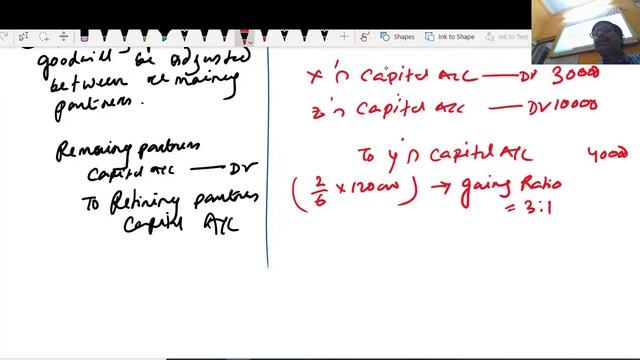 Shapes
Ink to Shape
Ink to Text
goodwill be adjusted
between remaining
partners.
Remaining partners
Capital A/C —— Dr
To Retiring partners
Capital A/C
x's Capital A/C —— Dr 30000
z's Capital A/C —— Dr 10000
To y's Capital A/C 40000
(2/6 × 120000) → gaing Ratio
= 3:1